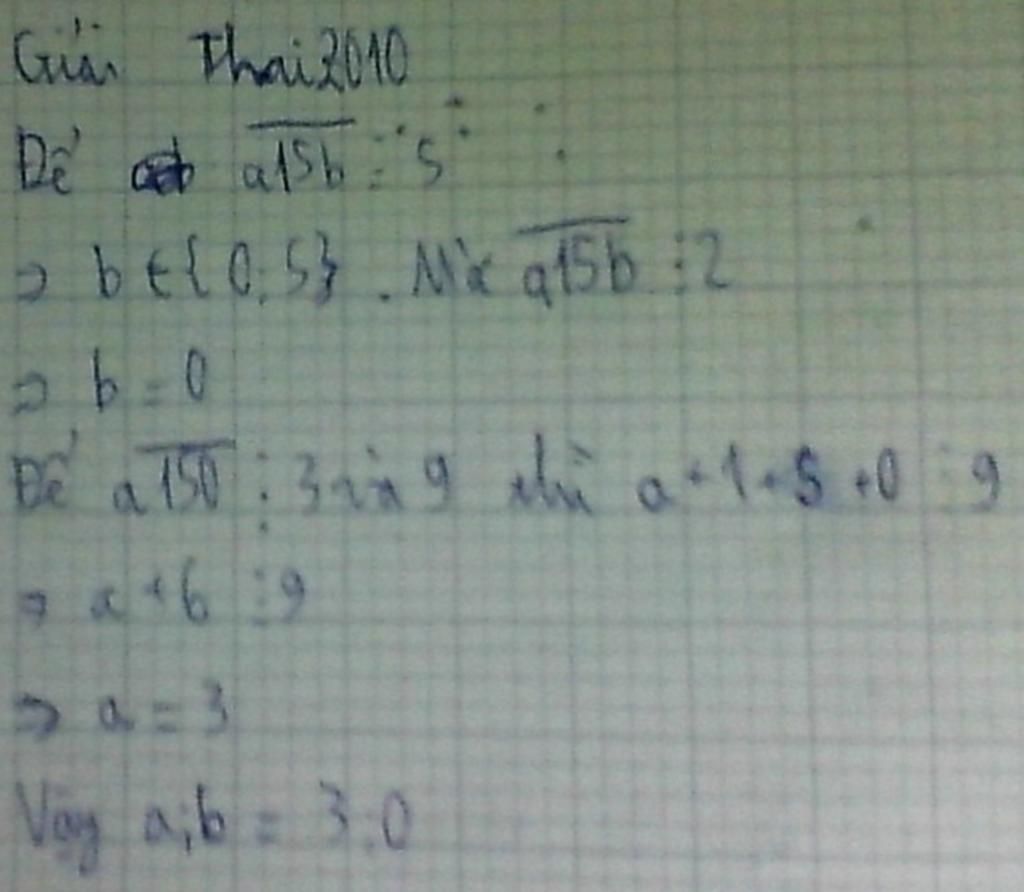 Giải Thai2010
Để a15b ⋮ 5
⇒ b ∈ {0;5}. Mà a15b ⋮ 2
⇒ b = 0
Để a150 ⋮ 3 và 9 thì a+1+5+0 ⋮ 9
⇒ a+6 ⋮ 9
⇒ a = 3
Vậy a;b = 3;0